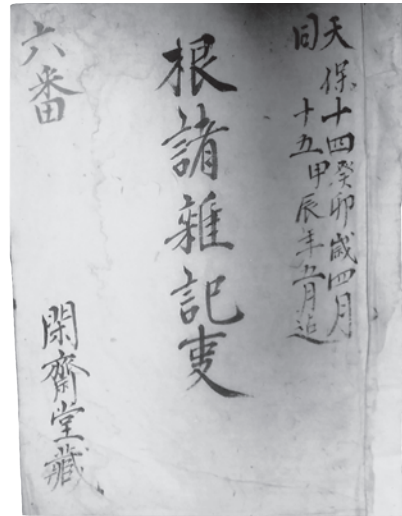 天保十四癸卯歳四月
同十五甲辰年五月迠
根諸雜記叓
六番
閑齋堂藏